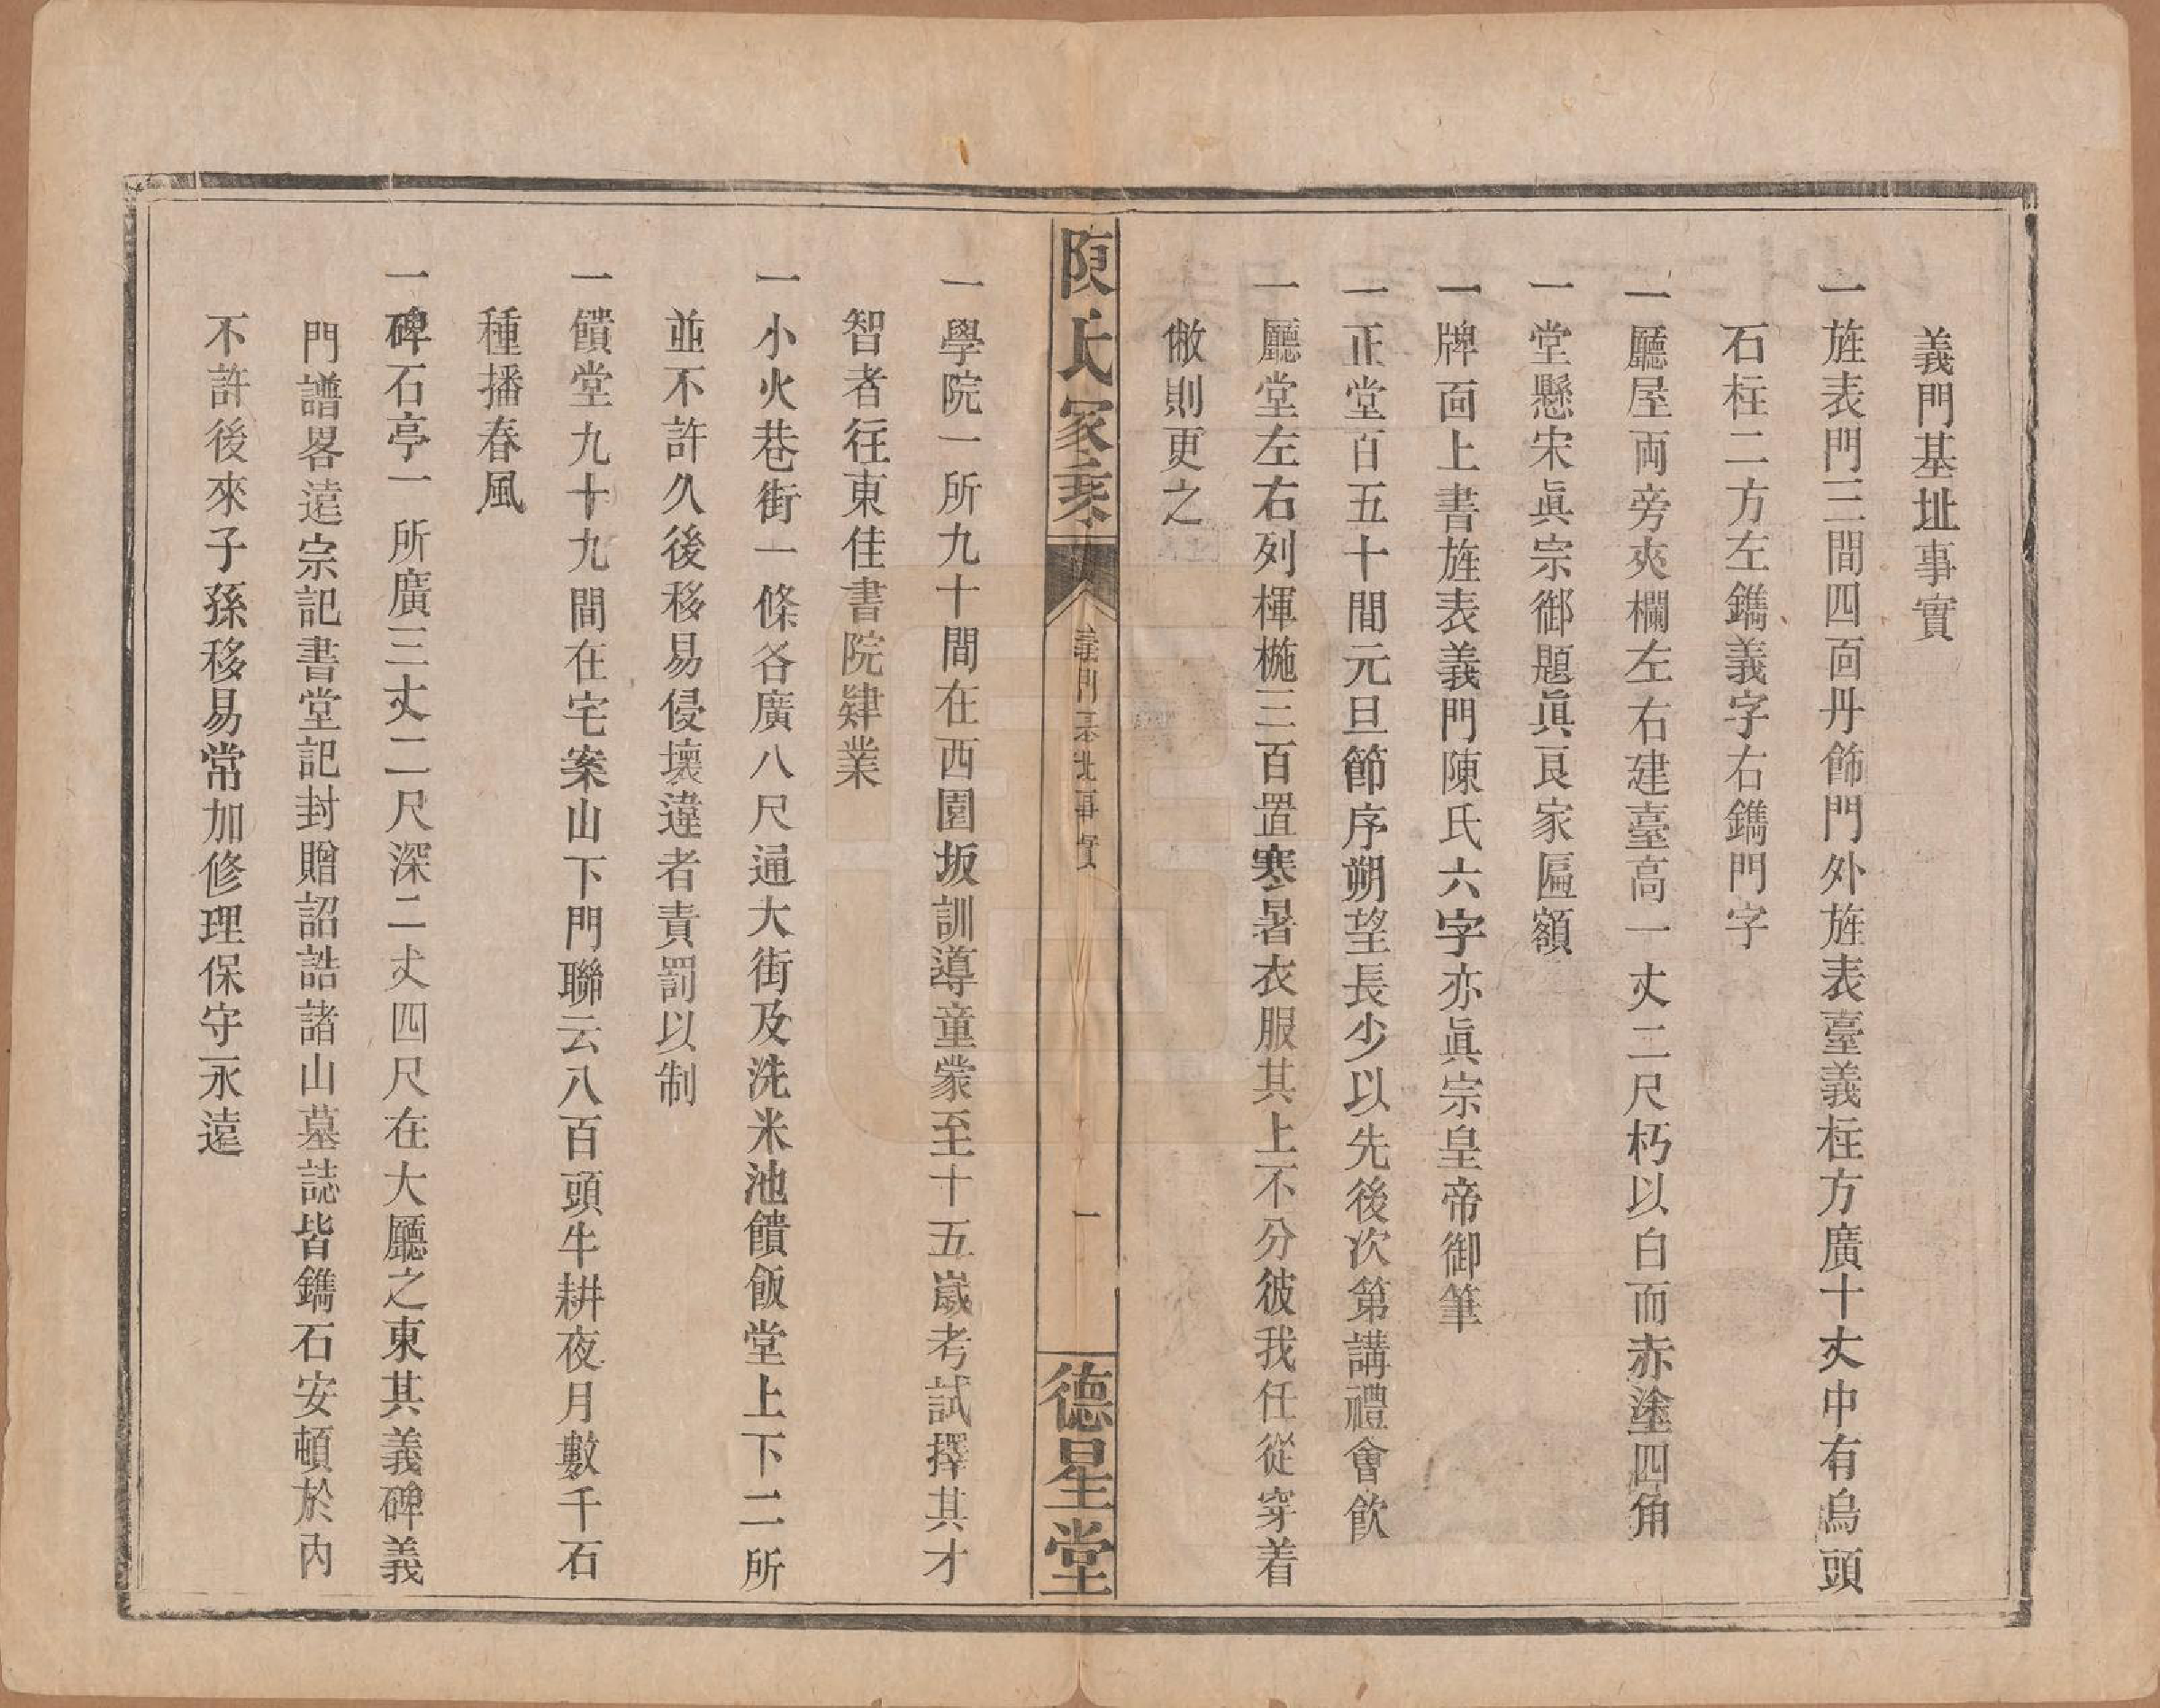 義門基址事實
一旌表門三間四面丹飾門外旌表臺義柱方廣十丈中有烏頭
石柱二方左鐫義字右鐫門字
一廳屋両旁夾欄左右建臺高一丈二尺朽以白而赤塗四角
一堂懸宋眞宗御題眞良家匾額
一牌面上書旌表義門陳氏六字亦眞宗皇帝御筆
一正堂百五十間元旦節序朔望長少以先後次第講禮會飲
一廳堂左右列楎椸三百置寒暑衣服其上不分彼我任從穿着
敝則更之
陳氏家乘
義門基址事實
一
德星堂
一學院一所九十間在西園坂訓導童蒙至十五歲考試擇其才
智者往東佳書院肄業
一小火巷街一條各廣八尺通大街及洗米池饋飯堂上下二所
並不許久後移易侵壞違者責罰以制
一饋堂九十九間在宅案山下門聯云八百頭牛耕夜月數千石
種播春風
一碑石亭一所廣三丈二尺深二丈四尺在大廳之東其義碑義
門譜畧遠宗記書堂記封贈詔誥諸山墓誌皆鐫石安頓於內
不許後來子孫移易常加修理保守永遠